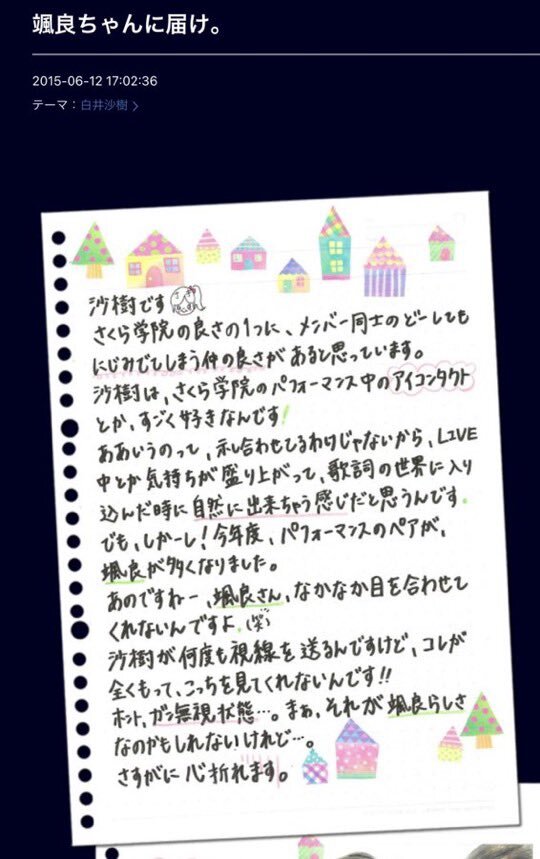 颯良ちゃんに届け。
2015-06-12 17:02:36
テーマ：白井沙樹 >
沙樹です
さくら学院の良さの1つに、メンバー同士のどーしても
にじみでてしまう仲の良さがあると思っています。
沙樹は、さくら学院のパフォーマンス中のアイコンタクト
とか、すごく好きなんです!
ああいうのって、示し合わせてるわけじゃないから、LIVE
中とか気持ちが盛り上がって、歌詞の世界に入り
込んだ時に自然に出来ちゃう感じだと思うんです。
でも、しかーし!今年度、パフォーマンスのペアが、
颯良が多くなりました。
あのですねー、颯良さん、なかなか目を合わせて
くれないんですよ。(笑)
沙樹が何度も視線を送るんですけど、コレが
全くもって、こっちを見てくれないんです!!
ホント、ガン無視状態…。まぁ、それが颯良らしさ
なのかもしれないけれど…。
さすがに心折れます。